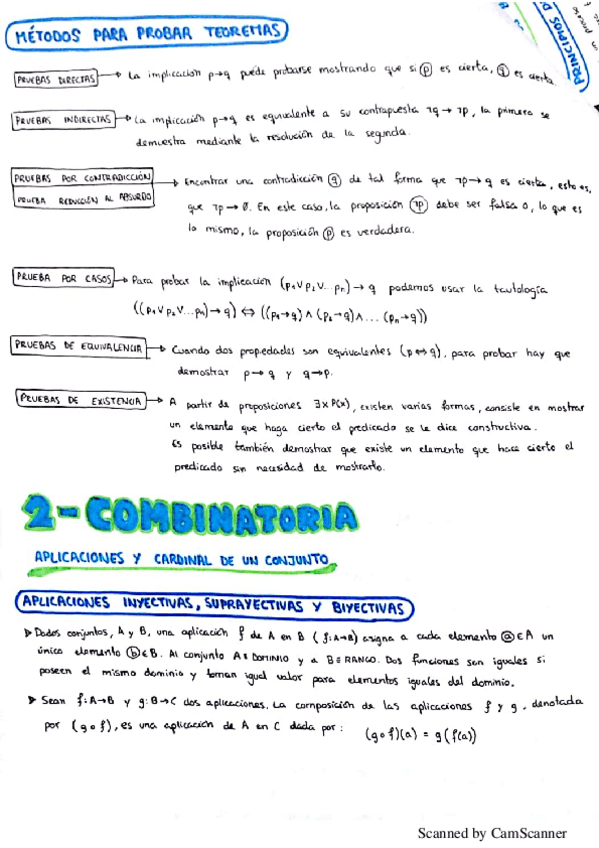 MÉTODOS PARA PROBAR TEOREMAS
PRINCIPIOS D
un proceso
PRUEBAS DIRECTAS → La implicación p→q puede probarse mostrando que si p es cierta, q es cierta.
PRUEBAS INDIRECTAS → La implicación p→q es equivalente a su contrapuesta ¬q → ¬p, la primera se
demuestra mediante la resolución de la segunda.
PRUEBAS POR CONTRADICCIÓN
PRUEBA REDUCCIÓN AL ABSURDO
→ Encontrar una contradicción q de tal forma que ¬p→q es cierta, esto es,
que ¬p → 0. En este caso, la proposición ¬p debe ser falsa o, lo que es
lo mismo, la proposición p es verdadera.
PRUEBA POR CASOS → Para probar la implicación (p₁∨p₂∨...pₙ)→ q podemos usar la tautología
((p₁∨p₂∨...pₙ)→q) ⇔ ((p₁→q)∧(p₂→q)∧... (pₙ→q))
PRUEBAS DE EQUIVALENCIA → Cuando dos propiedades son equivalentes (p↔q), para probar hay que
demostrar p→q y q→p.
PRUEBAS DE EXISTENCIA → A partir de proposiciones ∃x P(x), existen varias formas, consiste en mostrar
un elemento que haga cierto el predicado se le dice constructiva.
Es posible también demostrar que existe un elemento que hace cierto el
predicado sin necesidad de mostrarlo.
2-COMBINATORIA
APLICACIONES Y CARDINAL DE UN CONJUNTO
APLICACIONES INYECTIVAS, SUPRAYECTIVAS Y BIYECTIVAS
▷ Dados conjuntos, A y B, una aplicación f de A en B (f:A→B) asigna a cada elemento a∈A un
único elemento b∈B. Al conjunto A≡DOMINIO y a B≡RANGO. Dos funciones son iguales si
poseen el mismo dominio y toman igual valor para elementos iguales del dominio.
▷ Sean f:A→B y g:B→C dos aplicaciones. La composición de las aplicaciones f y g, denotada
por (g∘f), es una aplicación de A en C dada por: (g∘f)(a) = g(f(a))
Scanned by CamScanner